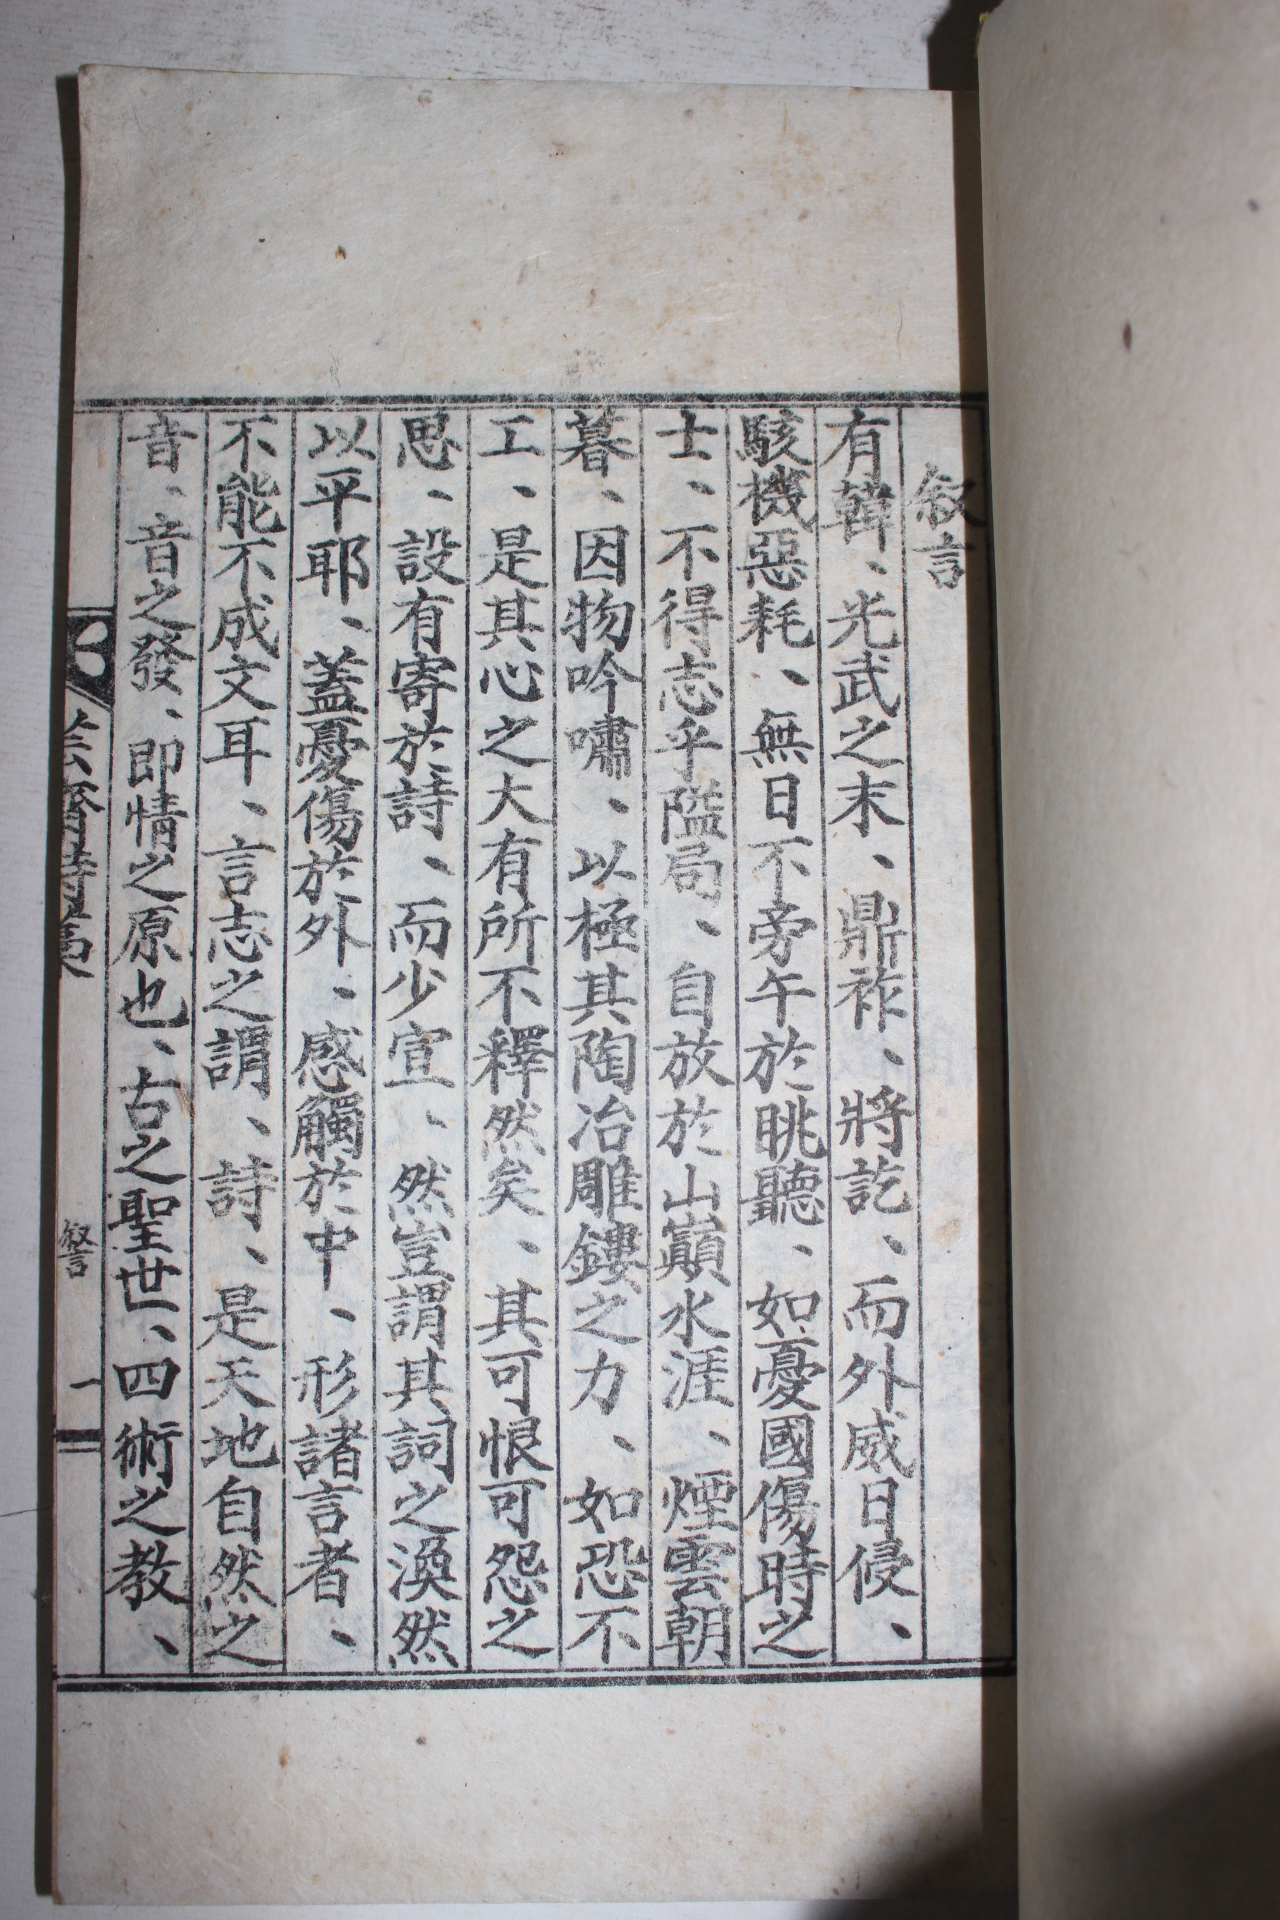 叙言
有韓、光武之末、鼎祚、將訖、而外威日侵、
駭機惡耗、無日不旁午於眺聽、如憂國傷時之
士、不得志乎隘局、自放於山巓水涯、煙雲朝
暮、因物吟嘯、以極其陶冶雕鏤之力、如恐不
工、是其心之大有所不釋然矣、其可恨可怨之
思、設有寄於詩、而少宣、然豈謂其詞之渙然
以平耶、蓋憂傷於外、感觸於中、形諸言者、
不能不成文耳、言志之謂、詩、是天地自然之
音、音之發、即情之原也、古之聖世、四術之教、
齋詩
叙言
一